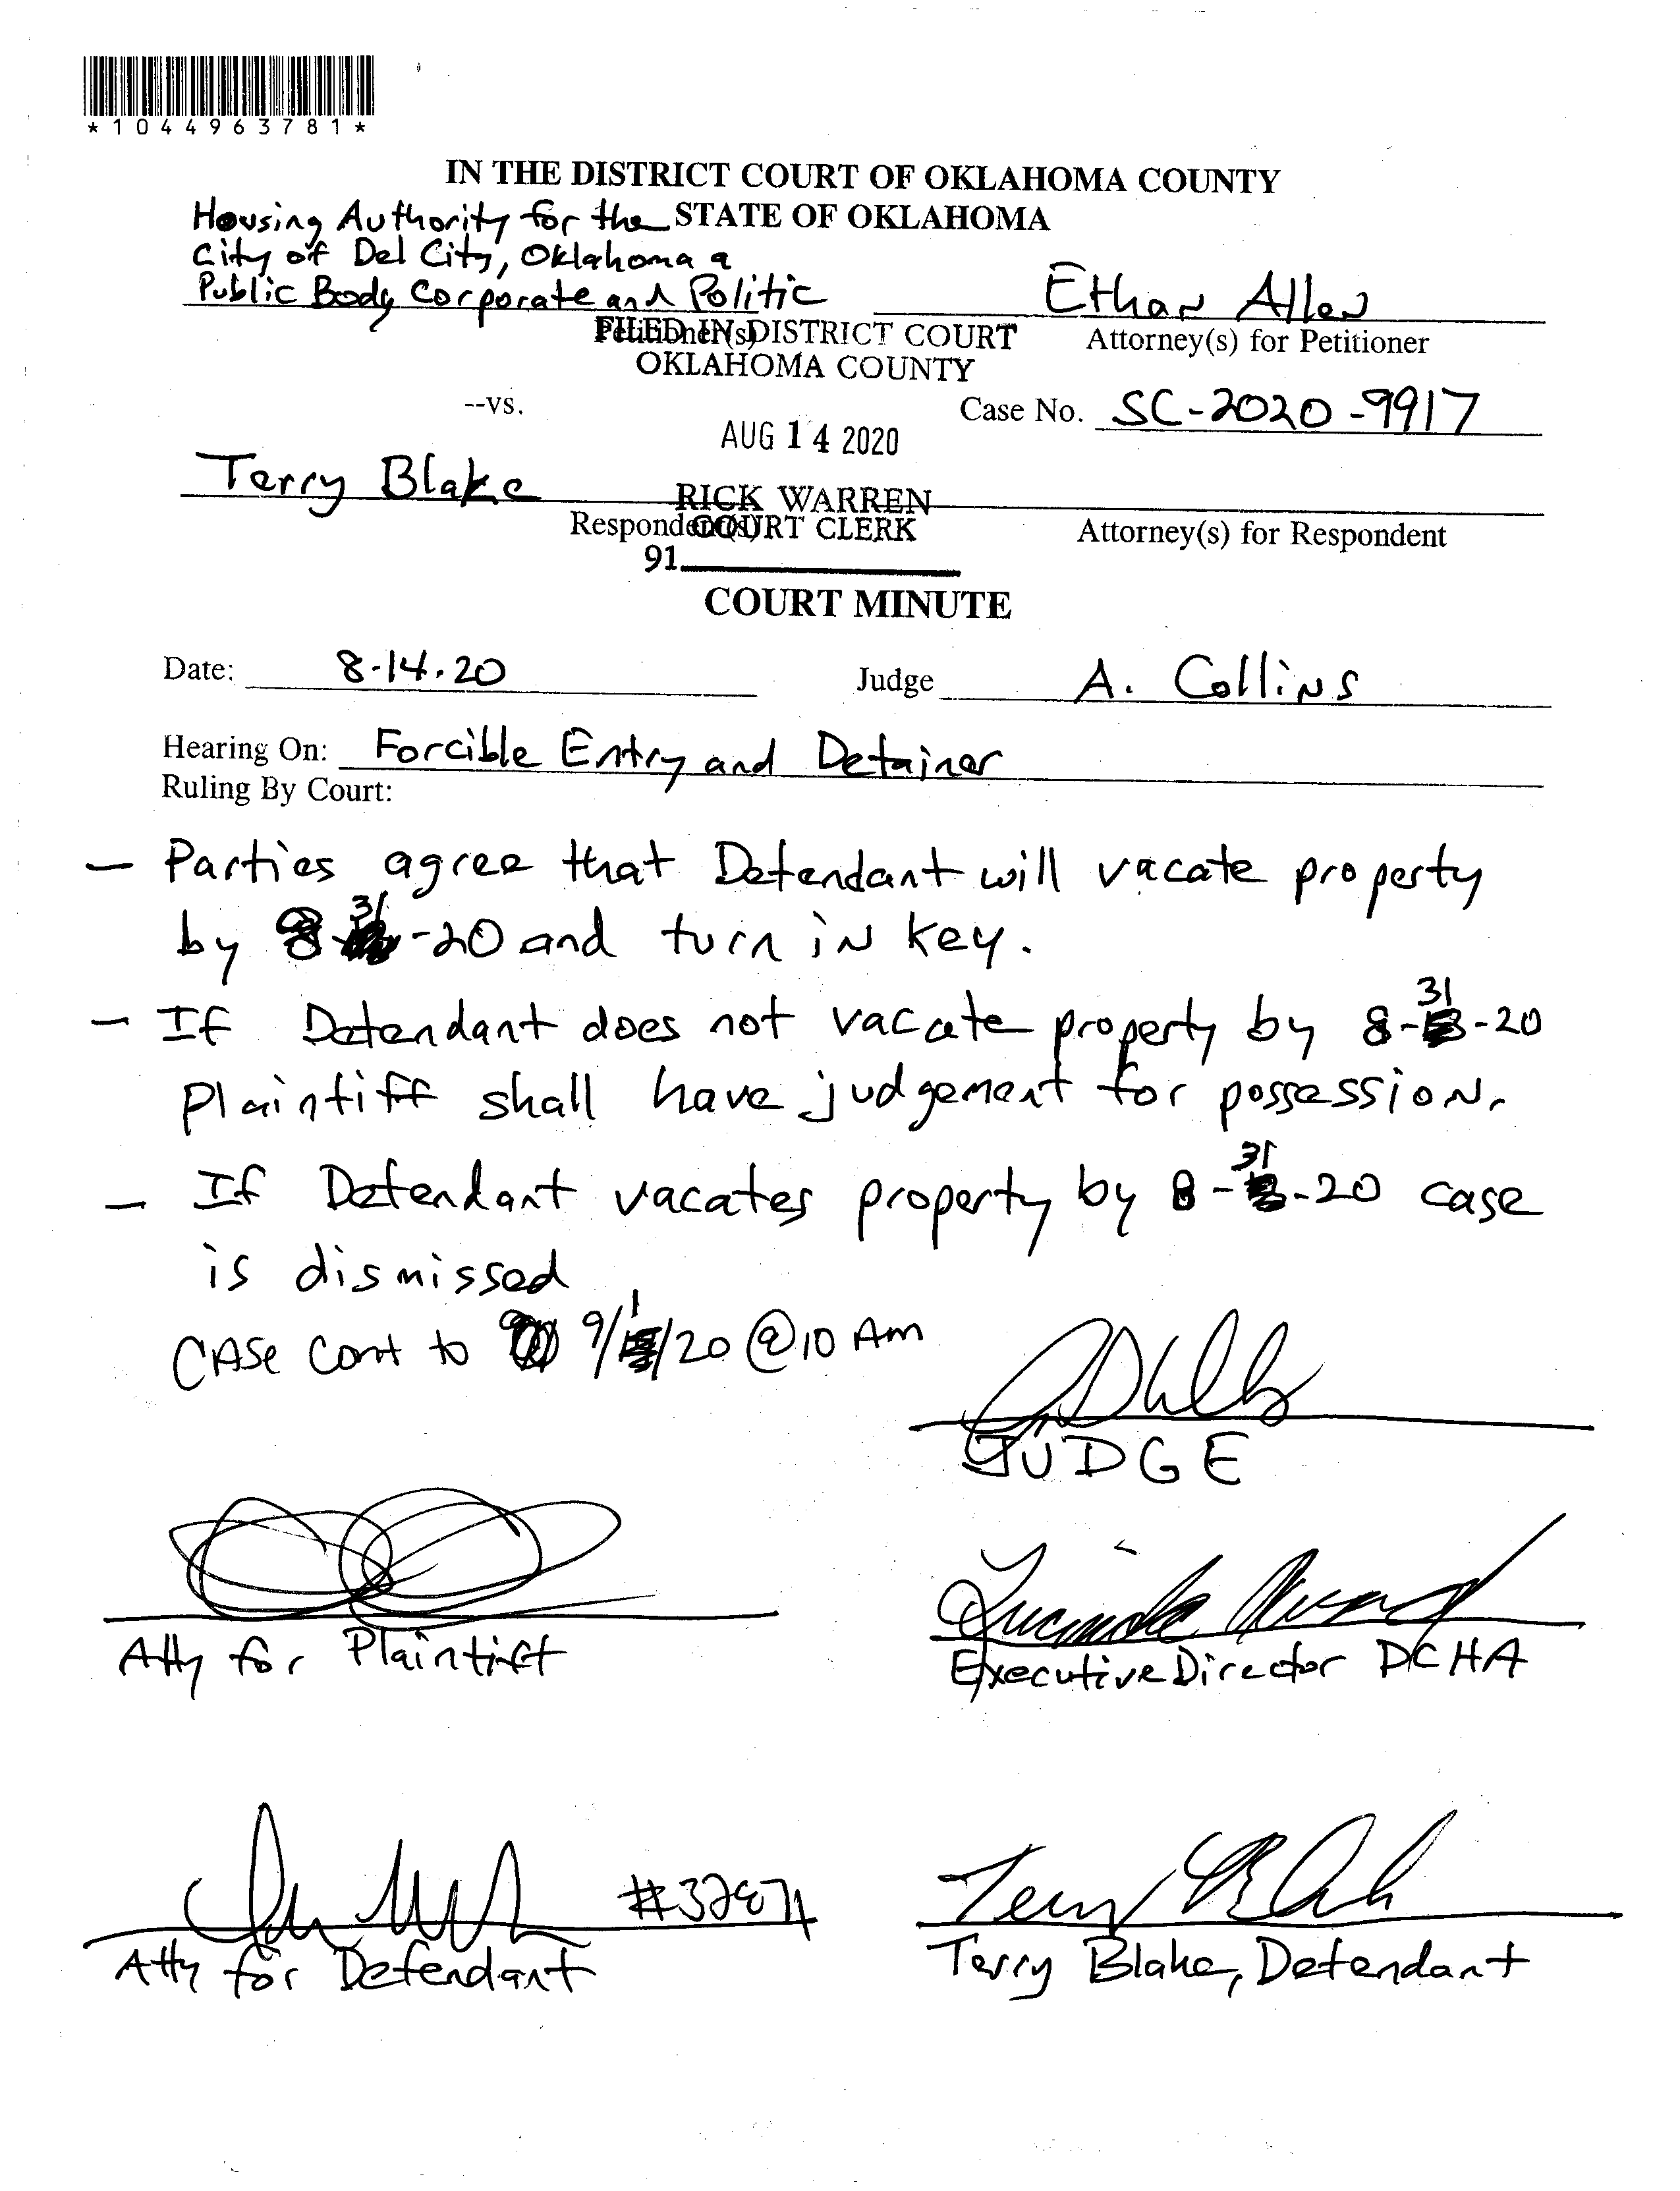 *1044963781*
IN THE DISTRICT COURT OF OKLAHOMA COUNTY
STATE OF OKLAHOMA
Housing Authority for the
City of Del City, Oklahoma a
Public Body Corporate and Politic
Ethan Allen
Petitioner(s)
Attorney(s) for Petitioner
FILED IN DISTRICT COURT
OKLAHOMA COUNTY
--vs.
Case No. SC-2020-9917
AUG 14 2020
Terry Blake
RICK WARREN
Respondent(s)
COURT CLERK
Attorney(s) for Respondent
91
COURT MINUTE
Date: 8-14-20
Judge A. Collins
Hearing On: Forcible Entry and Detainer
Ruling By Court:
- Parties agree that Defendant will vacate property
by 8-31-20 and turn in key.
- If Defendant does not vacate property by 8-31-20
Plaintiff shall have judgement for possession.
- If Defendant vacates property by 8-31-20 case
is dismissed
CASE Cont to 9/1/20 @ 10 Am
JUDGE
Atty for Plaintiff
Executive Director DCHA
Terry Blake
Atty for Defendant
Terry Blake, Defendant